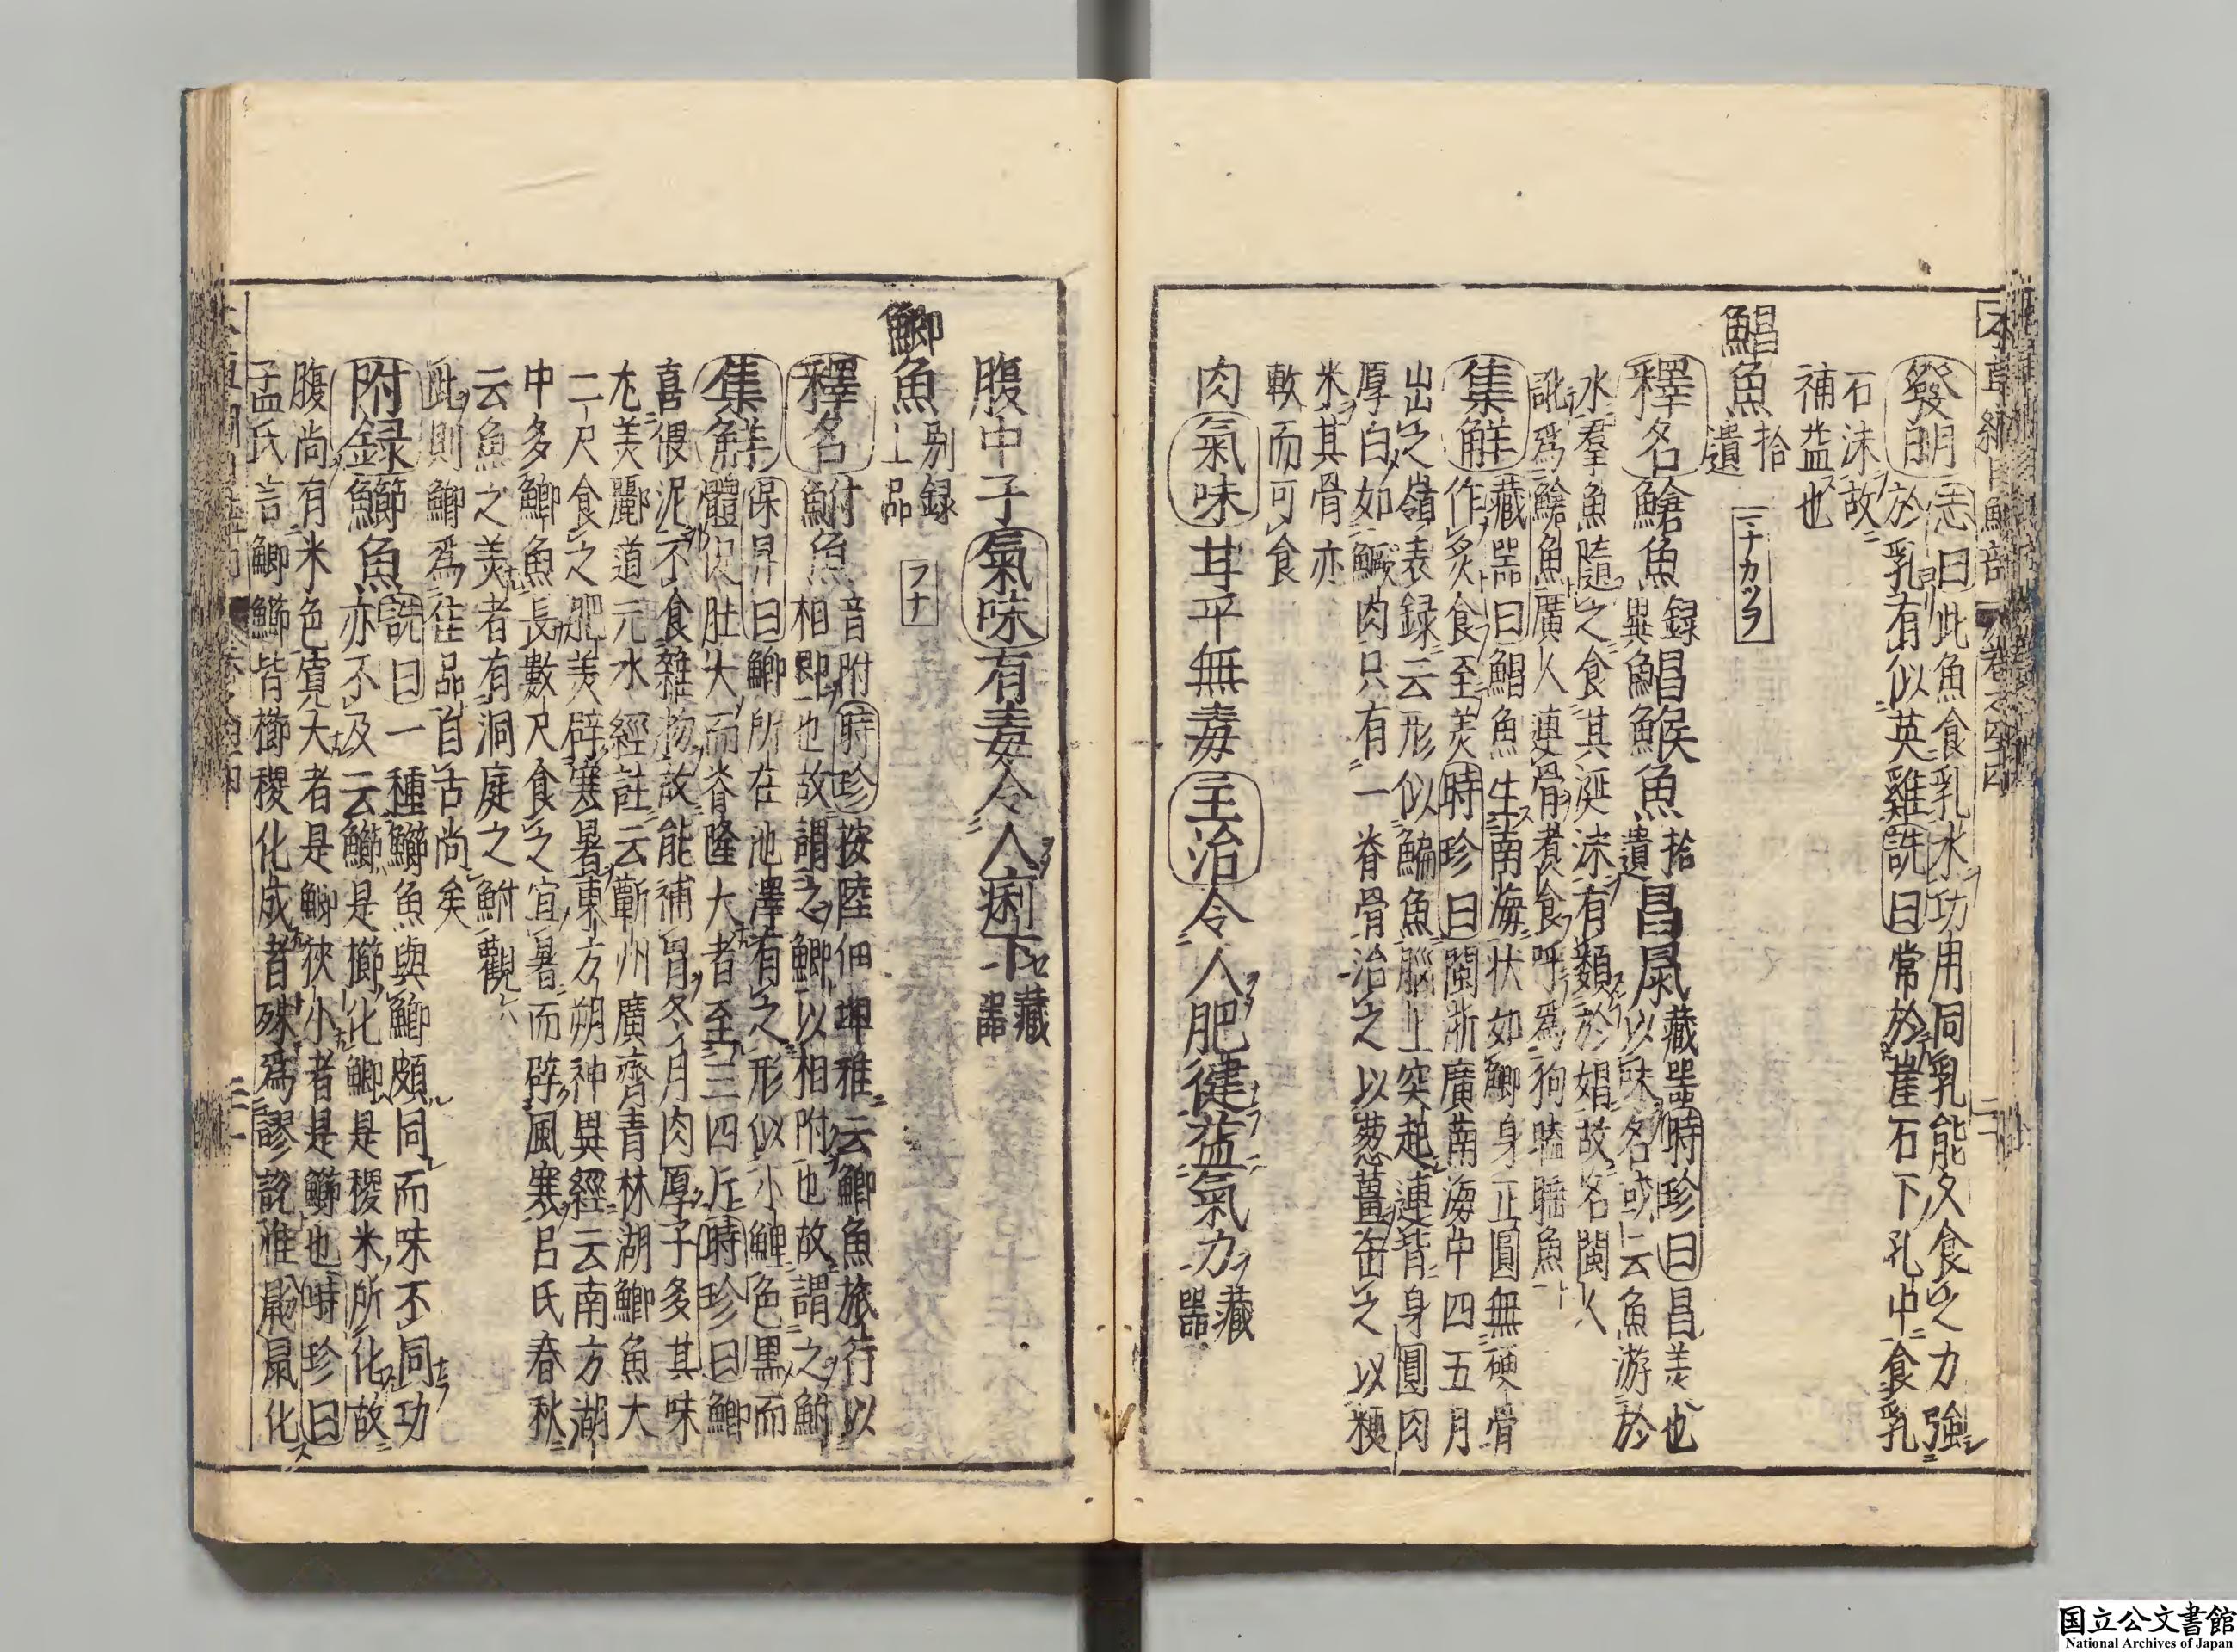 發明 志曰此魚食乳水功用同乳能久食之力強
於乳有似英雞詵曰常於崖石下孔中食乳
石沫故
補益也
鯧魚 拾遺 マナカツヲ
釋名 鯧魚 錄異 鯧鯸魚 拾遺 昌鼠 藏器 時珍曰昌羙也
以味名或云魚游於
水羣魚隨之食其涎沫有類於娼故名閩人
訛爲鯧魚廣人連骨煑食呼爲狗瞌睡魚
集解 藏器曰鯧魚生南海状如鯽身正圓無硬骨
作炙食至羙時珍曰閩浙廣南海中四五月
出之嶺表録云形似鯿魚腦上突起連背身圓肉
厚白如鱖肉只有一脊骨治之以葱薑缶之以粳
米其骨亦
軟而可食
肉 氣味 甘平無毒 主治 令人肥健益氣力 藏器
腹中子 氣味 有毒令人痢下 藏器
鯽魚 別録上品 フナ
釋名 鮒魚 音附時珍按陸佃埤雅云鯽魚旅行以
相即也故謂之鯽以相附也故謂之鮒
集解 保昇曰鯽所在池澤有之形似小鯉色黒而
體促肚大而脊隆大者至三四斤時珍曰鯽
喜偎泥不食雜物故能補胃冬月肉厚子多其味
尤美酈道元水經註云蘄州廣齊青林湖鯽魚大
二尺食之肥美辟寒暑東方朔神異經云南方湖
中多鯽魚長數尺食之宜暑而辟風寒呂氏春秋
云魚之美者有洞庭之鮒觀
此則鯽爲佳品自古尚矣
附録 鰤魚 詵曰一種鰤魚與鯽頗同而味不同功
亦不及云鰤是櫛化鯽是稷米所化故
腹尚有米色寛大者是鯽狹小者是鰤也時珍曰
孟氏言鯽鰤皆櫛稷化成者殊爲謬說惟鼢鼠化
国立公文書館
National Archives of Japan